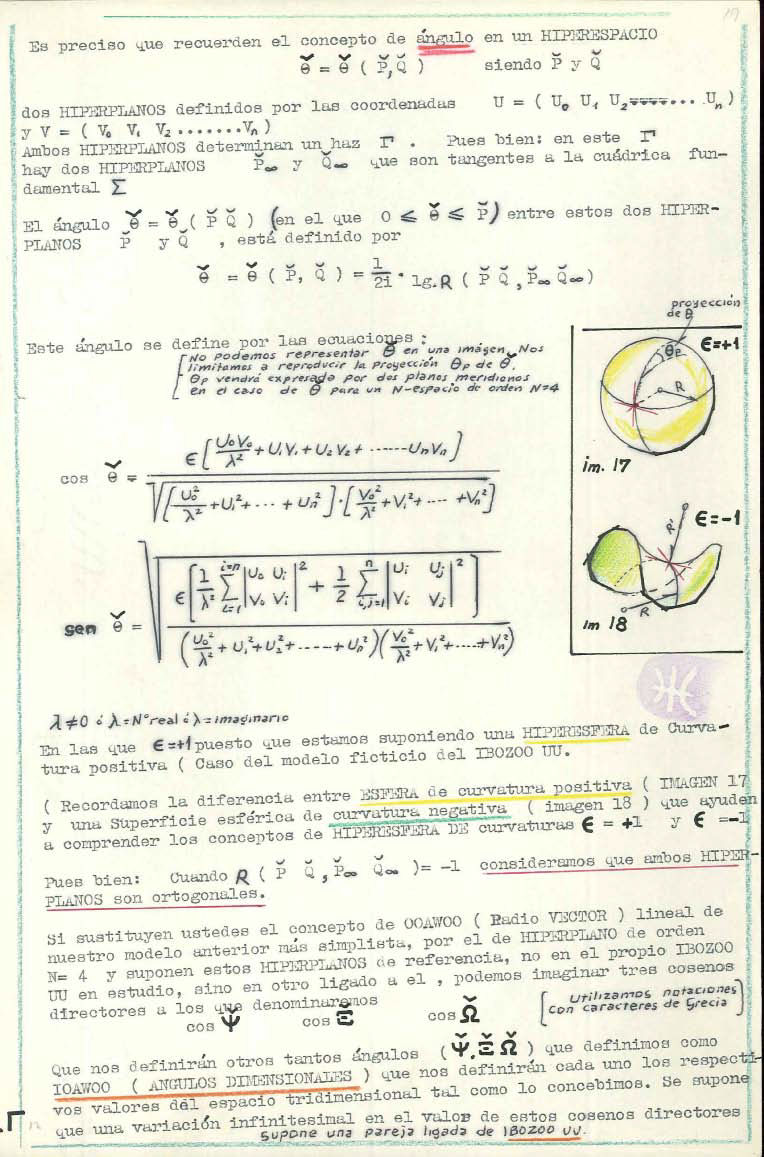 19
Es preciso que recuerden el concepto de ángulo en un HIPERESPACIO
θ̌ = θ̌ ( P̌, Q̌ ) siendo P̌ y Q̌
dos HIPERPLANOS definidos por las coordenadas U = ( U₀ U₁ U₂ ..... Uₙ )
y V = ( V₀ V₁ V₂ .......Vₙ )
Ambos HIPERPLANOS determinan un haz Γ . Pues bien: en este Γ
hay dos HIPERPLANOS P̌∞ y Q̌∞ que son tangentes a la cuádrica fun-
damental Σ
El ángulo θ̌ = θ̌ ( P̌ Q̌ ) (en el que 0 ≤ θ̌ ≤ P̌) entre estos dos HIPER-
PLANOS P̌ y Q̌ , está definido por
θ̌ = θ̌ ( P̌, Q̌ ) = 1/2i · lg.R ( P̌ Q̌ , P̌∞ Q̌∞)
Este ángulo se define por las ecuaciones :
[No podemos representar θ̌ en una imágen. Nos
limitamos a reproducir la proyección θp de θ̌.
θp vendrá expresada por dos planos meridianos
en el caso de θ̌ para un N-espacio de orden N=4
proyección
de θ
θp
ϵ=+1
R
im. 17
cos θ̌ = ϵ[U₀V₀/λ² + U₁V₁ + U₂V₂ + ------UₙVₙ] / √([U₀²/λ² + U₁² + --- + Uₙ²]·[V₀²/λ² + V₁² + ---- + Vₙ²])
ϵ=-1
R'
R
im 18
sen θ̌ = √(ϵ[1/λ² Σ(i=1, i=n) |U₀ Uᵢ; V₀ Vᵢ|² + 1/2 Σ(i,j=1, n) |Uᵢ Uⱼ; Vᵢ Vⱼ|²] / (U₀²/λ² + U₁² + U₂² + ----- + Uₙ²)(V₀²/λ² + V₁² + ---- + Vₙ²))
λ≠0 ó λ=Nº real ó λ=imaginario
En las que ϵ=+1 puesto que estamos suponiendo una HIPERESFERA de Curva-
tura positiva ( Caso del modelo ficticio del IBOZOO UU.
( Recordamos la diferencia entre ESFERA de curvatura positiva ( IMAGEN 17
y una Superficie esférica de curvatura negativa ( imagen 18 ) que ayuden
a comprender los conceptos de HIPERESFERA DE curvaturas ϵ = +1 y ϵ = -1
Pues bien: Cuando R ( P̌ Q̌ , P̌∞ Q̌∞ )= -1 consideramos que ambos HIPER-
PLANOS son ortogonales.
Si sustituyen ustedes el concepto de OOAWOO ( Radio VECTOR ) lineal de
nuestro modelo anterior más simplista, por el de HIPERPLANO de orden
N= 4 y suponen estos HIPERPLANOS de referencia, no en el propio IBOZOO
UU en estudio, sino en otro ligado a el , podemos imaginar tres cosenos
directores a los que denominaremos
cos Ψ̌ cos Ξ̌ cos Ω̌
[Utilizamos notaciones
con caracteres de Grecia]
Que nos definirán otros tantos ángulos (Ψ̌, Ξ̌ Ω̌ ) que definimos como
IOAWOO ( ANGULOS DIMENSIONALES ) que nos definirán cada uno los respecti-
vos valores del espacio tridimensional tal como lo concebimos. Se supone
que una variación infinitesimal en el valor de estos cosenos directores
supone una pareja ligada de IBOZOO UU.